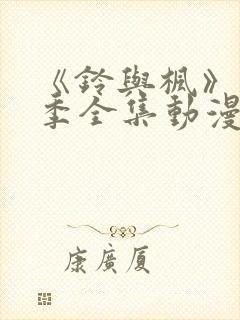 《鈴與楓》
季全集動漫
康廣厦